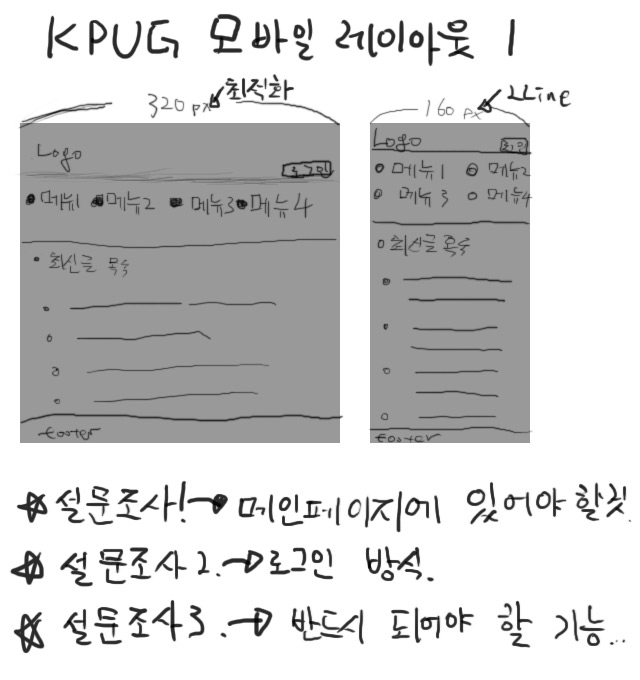 KPUG 모바일 레이아웃 1
320 px 최적화
Logo
로그인
메뉴1 메뉴2 메뉴3 메뉴4
최신글 목록
footer
160 px 2Line
Logo
로그인
메뉴1 메뉴2
메뉴3 메뉴4
최신글 목록
footer
☆ 설문조사1 → 메인페이지에 있어야 할 것
☆ 설문조사2. → 로그인 방식.
☆ 설문조사3. → 반드시 되어야 할 기능...